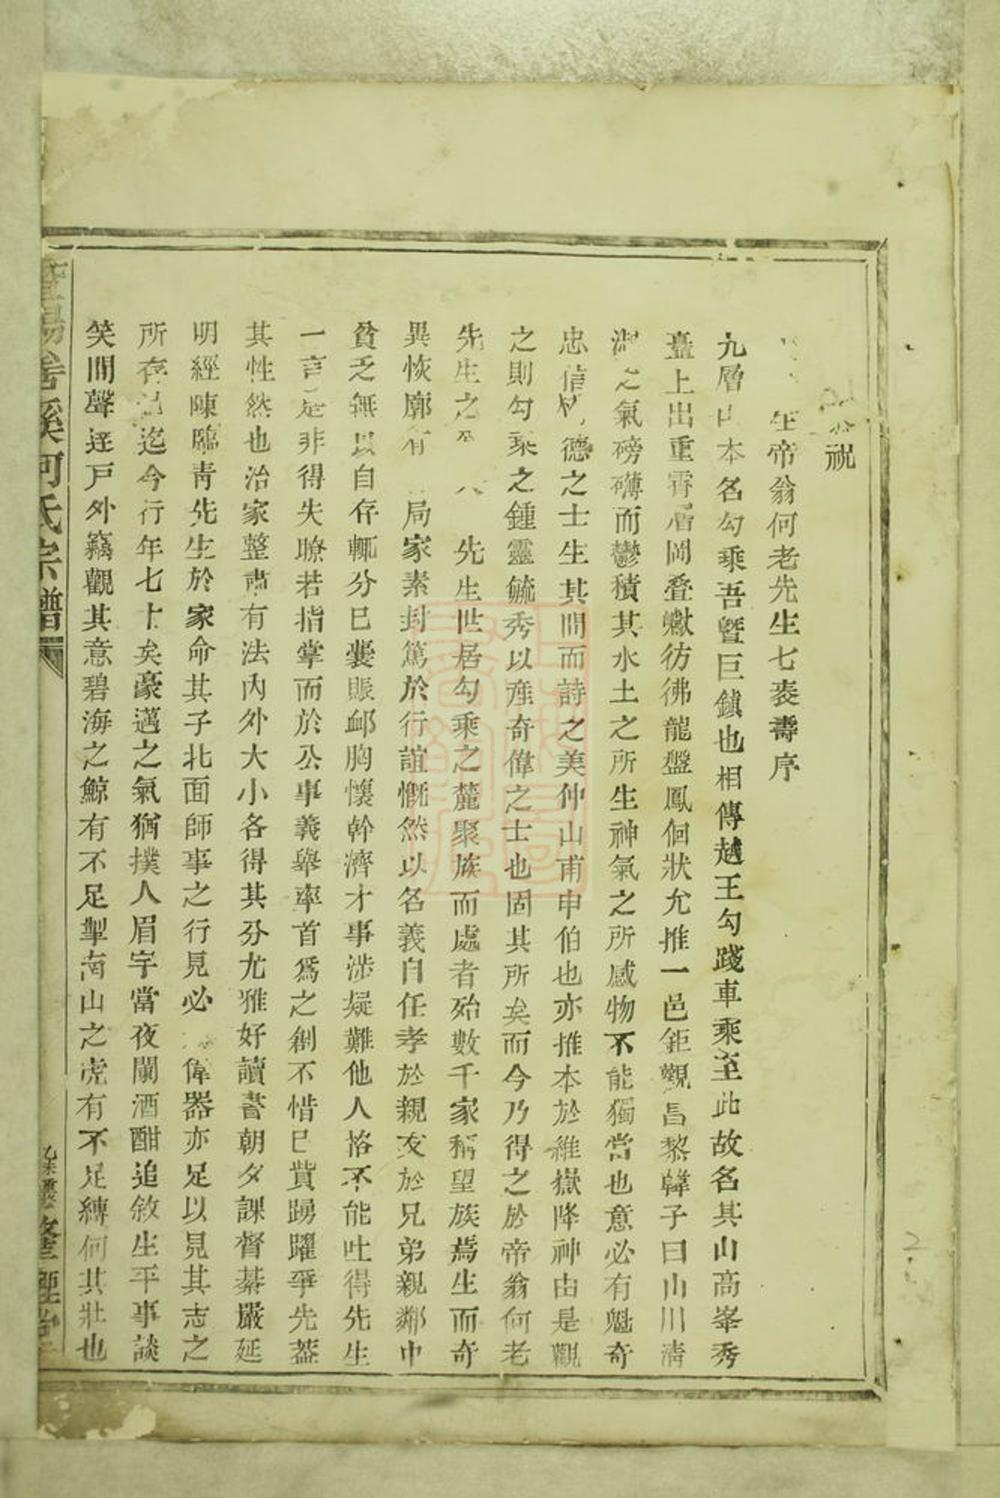 祝
生帝翁何老先生七袠壽序
九層山本名勾乘吾暨巨鎮也相傳越王勾踐車乘至此故名其山高峯秀
臺上出重霄層岡叠巘彷彿龍盤鳳佪狀允推一邑鉅觀昌黎韓子曰山川清
淑之氣磅礴而鬱積其水土之所生神氣之所感物不能獨當也意必有魁奇
忠信材德之士生其間而詩之美仲山甫申伯也亦推本於維嶽降神由是觀
之則勾乘之鍾靈毓秀以產奇偉之士也固其所矣而今乃得之於帝翁何老
先生之 先生世居勾乘之麓聚族而處者殆數千家稱望族焉生而奇
異恢廓有 局家素封篤於行誼慨然以名義自任孝於親友於兄弟親鄰中
貧乏無以自存輒分已囊賑卹胸懷幹濟才事涉疑難他人格不能吐得先生
一言是非得失瞭若指掌而於公事義舉率首爲之創不惜已貲踴躍爭先蓋
其性然也治家整肅有法內外大小各得其分尤雅好讀書朝夕課督綦嚴延
明經陳臨青先生於家命其子北面師事之行見必 偉器亦足以見其志之
所存已迄今行年七十矣豪邁之氣猶撲人眉宇當夜闌酒酣追敘生平事談
笑間聲達戶外竊觀其意碧海之鯨有不足掣南山之虎有不足縛何其壯也
暨陽 溪何氏宗譜